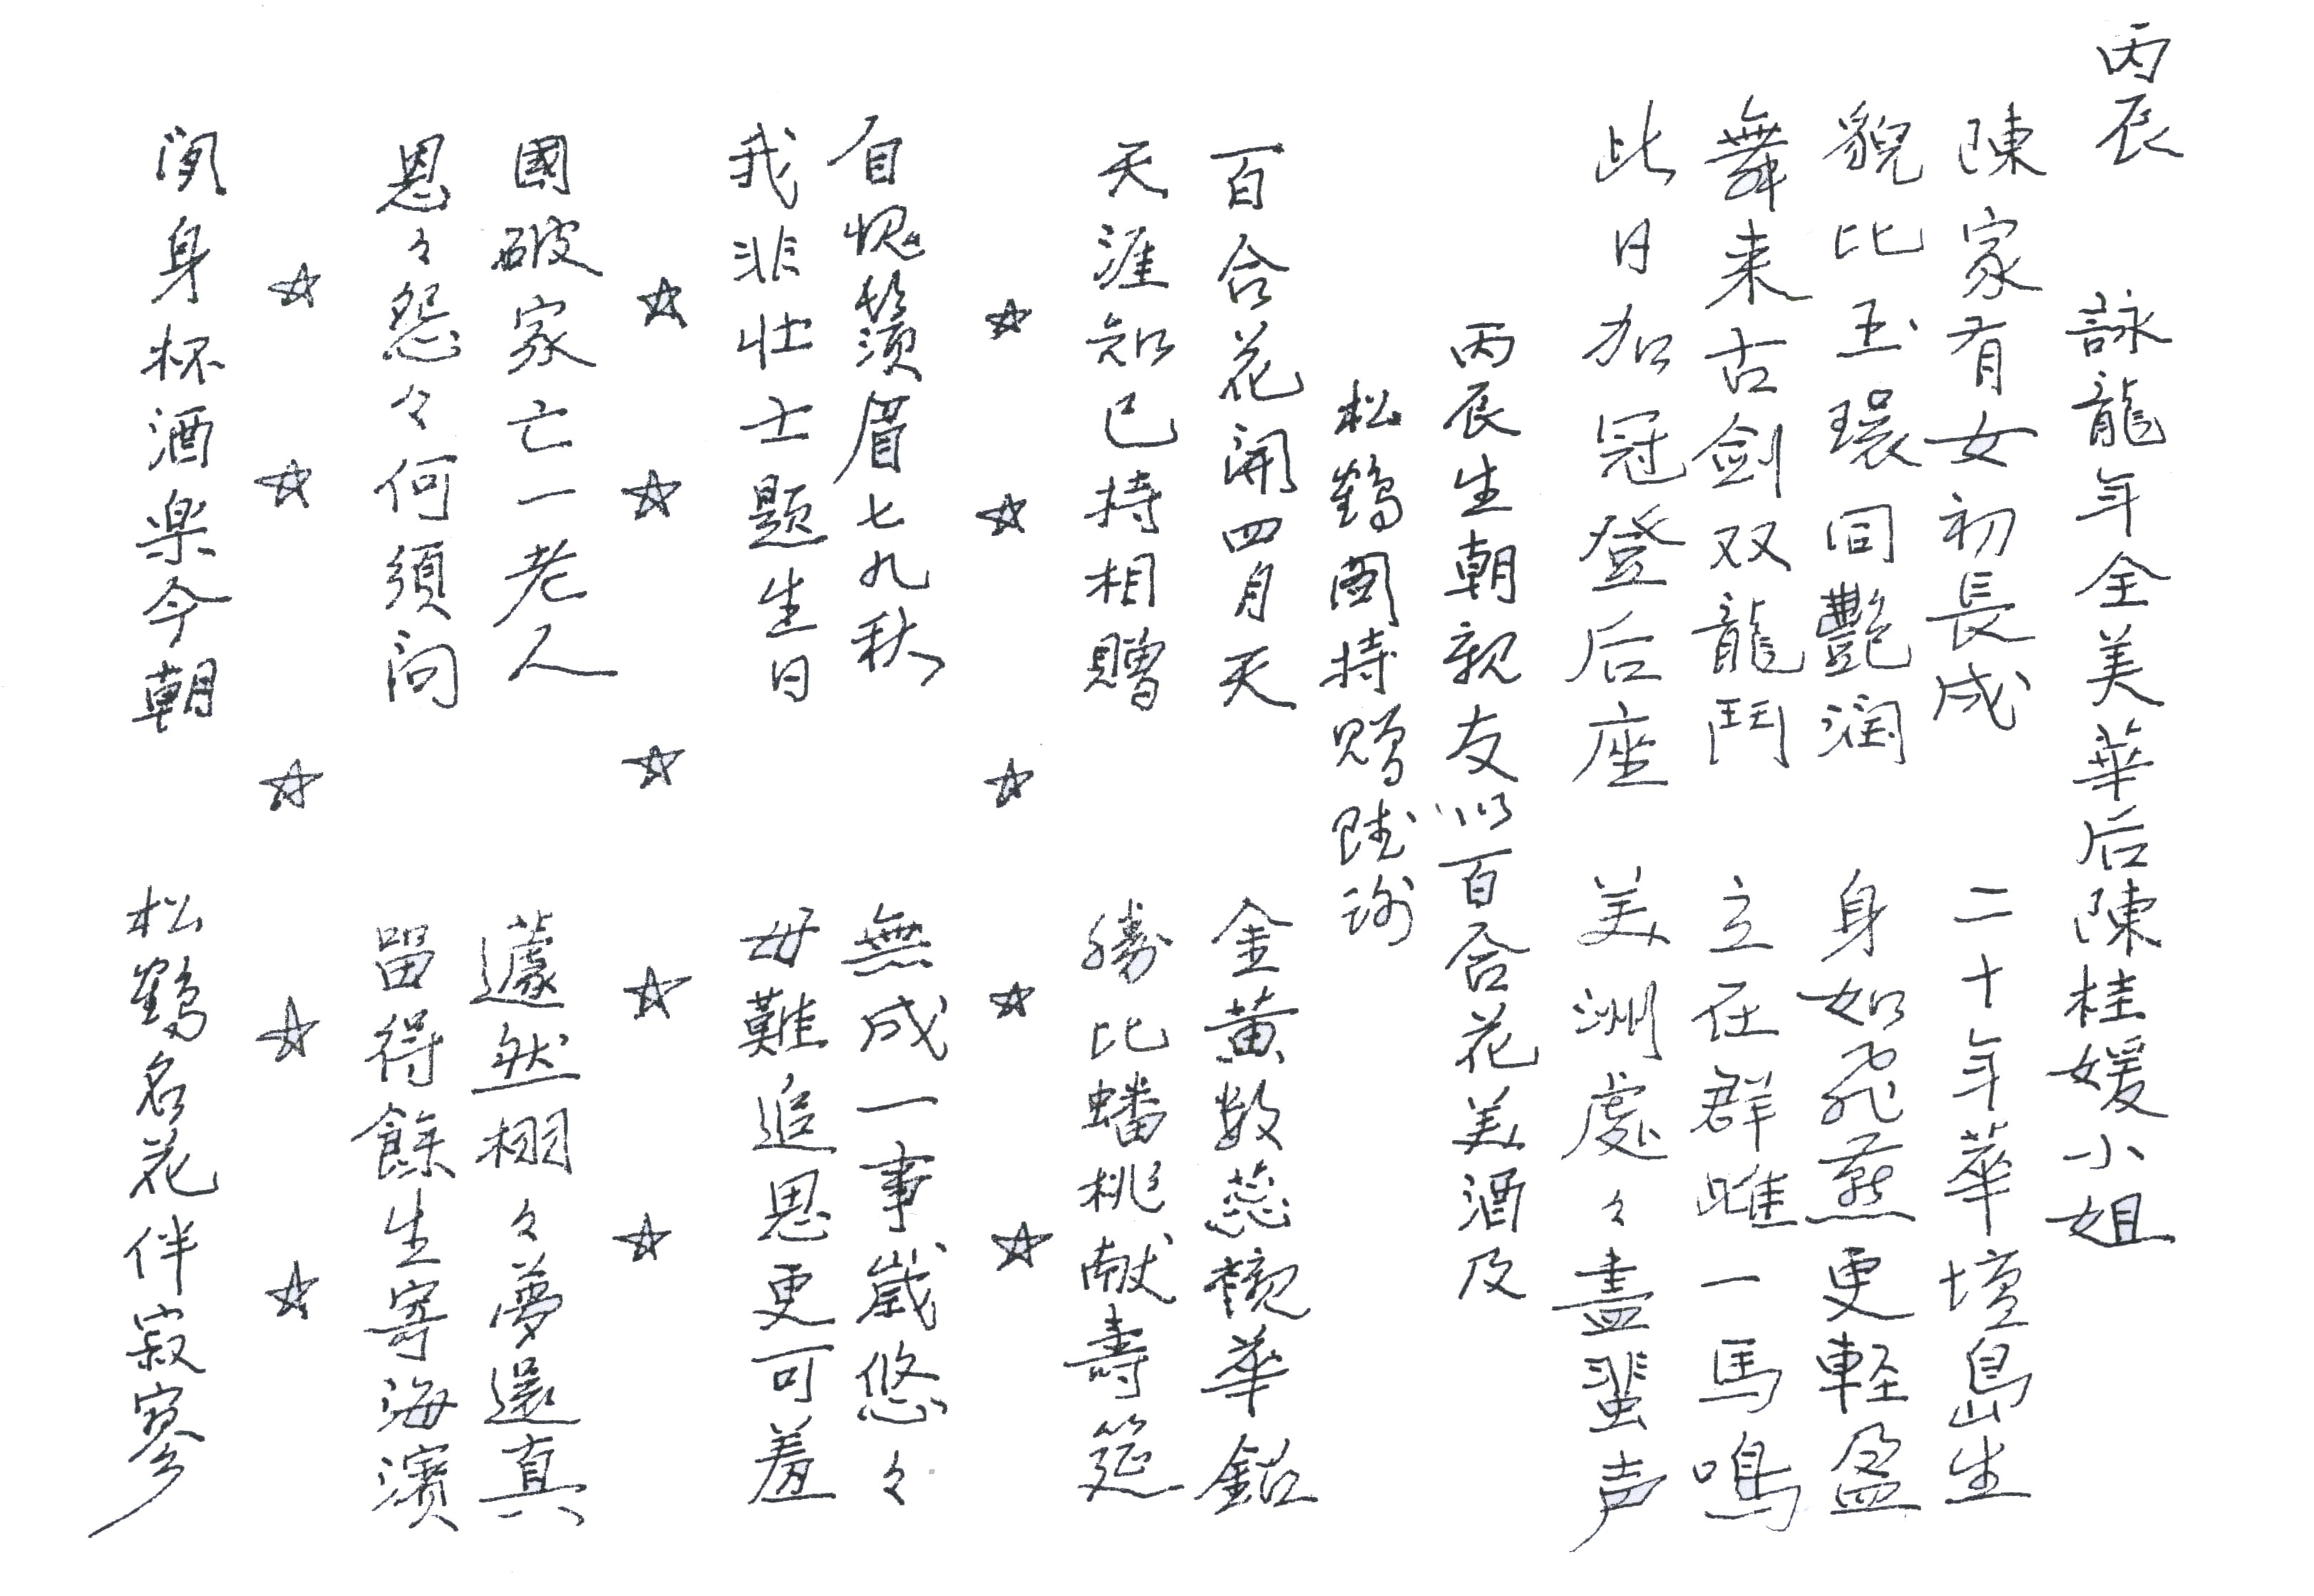 丙辰 詠龍年全美華后陳桂媛小姐
陳家有女初長成 二十年華壇島生
貌比玉環同艷潤 身如飛燕更輊盈
舞来古劍双龍鬥 立在群雌一馬鳴
此日加冠登后座 美洲處々盡蜚声
丙辰生朝親友以百合花美酒及
松鶴図持贈賦謝
百合花開四月天 金黄数蕊襯華鈿
天涯知已持相贈 勝比蟠桃献壽筵
☆ ☆ ☆ ☆ ☆
自愧鬚眉七九秋 無成一事歲悠々
我非壮士題生日 毋難追思更可羞
☆ ☆ ☆ ☆ ☆
國破家亡一老人 蘧然栩々夢還真
恩々怨々何須问 留得餘生寄海濱
☆ ☆ ☆ ☆ ☆
身杯酒楽今朝 松鶴名花伴寂寥